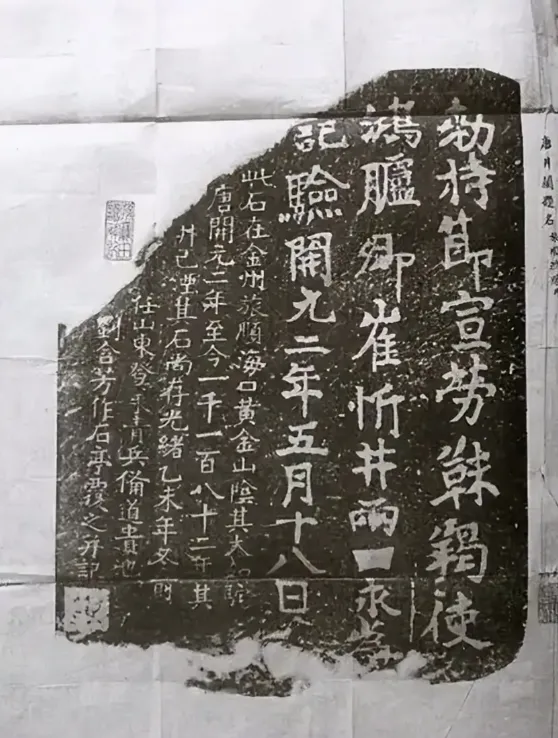 唐井闌題名
勅持節宣勞靺羯使
鴻臚卿崔忻井兩口永為
記驗開元二年五月十八日
此石在金州旅順海口黃金山陰其大如駝
唐開元二年至今一千一百八十二年其
井已湮其石尚存光緒乙未年冬前
任山東登萊青兵備道貴池
劉含芳作石亭覆之并記